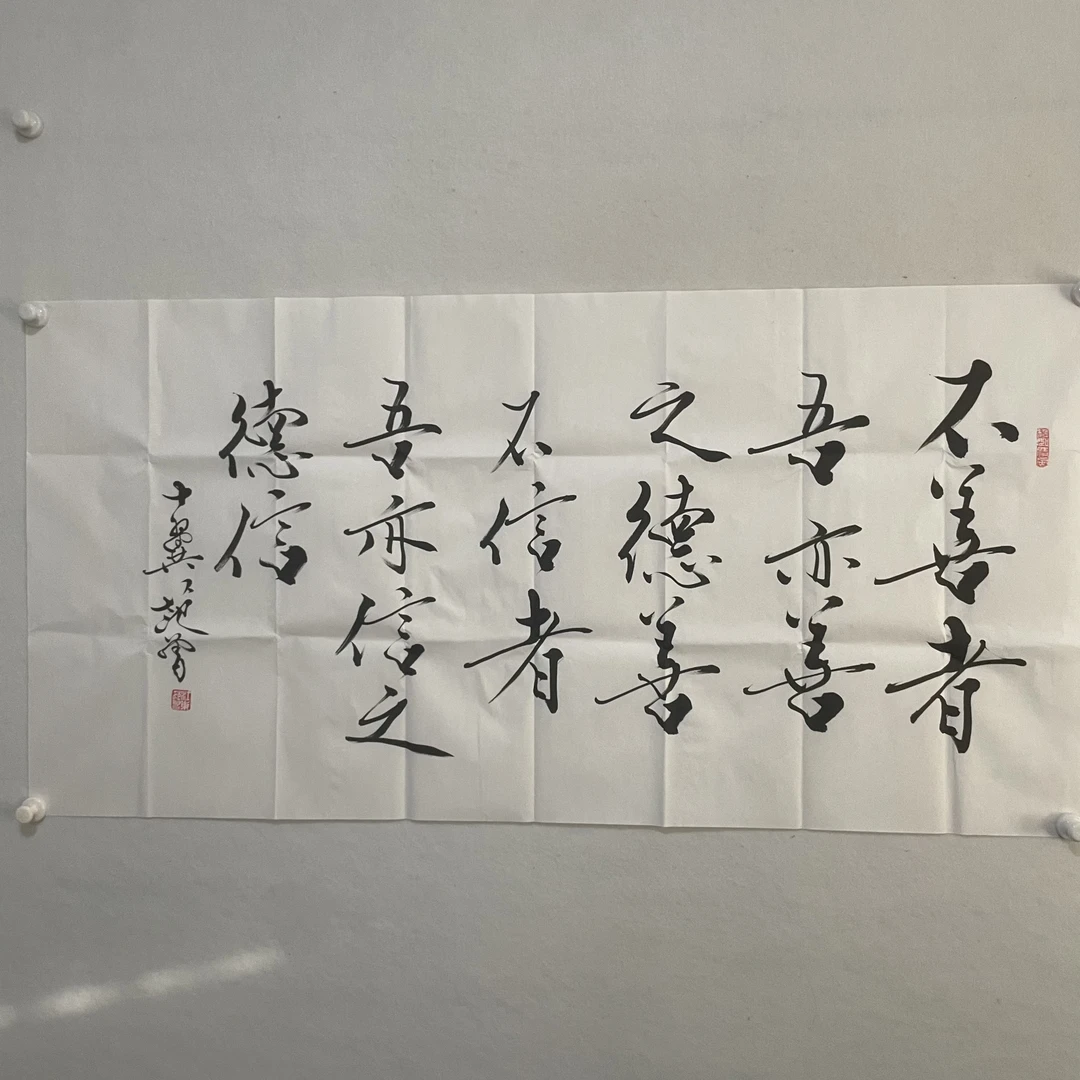 不善者
吾亦善
之德善
不信者
吾亦信之
德信
十翼